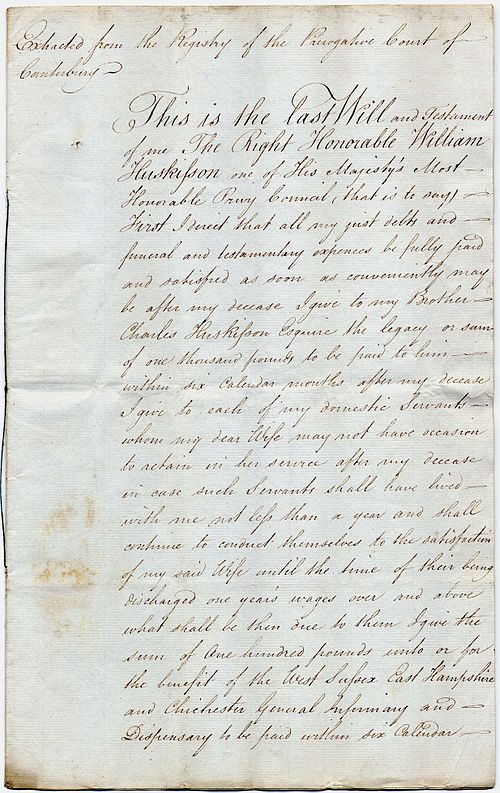 Extracted from the Registry of the Prerogative Court of
Canterbury
This is the Last Will and Testament
of me The Right Honorable William
Huskisson one of His Majesty's Most
Honorable Privy Council, (that is to say)
First I direct that all my just debts and
funeral and testamentary expences be fully paid
and satisfied as soon as conveniently may
be after my decease I give to my Brother
Charles Huskisson Esquire the legacy or sum
of one thousand pounds to be paid to him
within six Calendar months after my decease
I give to each of my domestic Servants
whom my dear Wife may not have occasion
to retain in her service after my decease
in case such Servants shall have lived
with me not less than a year and shall
continue to conduct themselves to the satisfaction
of my said Wife until the time of their being
discharged one years wages over and above
what shall be then due to them I give the
sum of One hundred pounds unto or for
the benefit of the West Sussex East Hampshire
and Chichester General Infirmary and
Dispensary to be paid within six Calendar